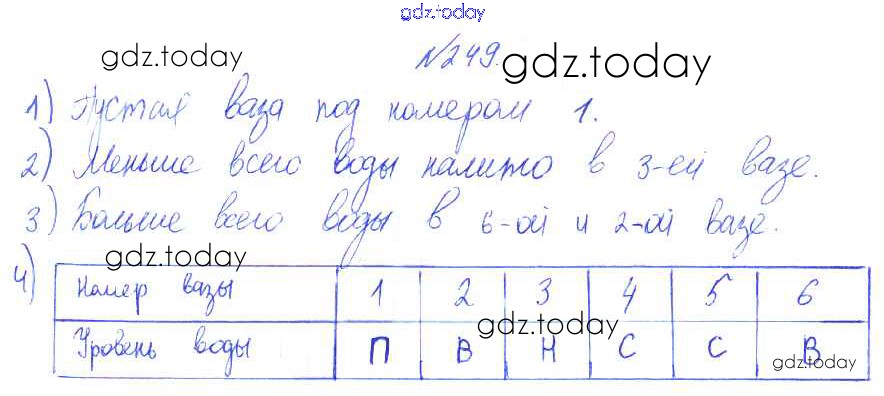 gdz.today
gdz.today
№249.
gdz.today
1) Пустая ваза под номером 1.
2) Меньше всего воды налито в 3-ей вазе.
3) Больше всего воды в 6-ой и 2-ой вазе.
gdz.today
4)
Номер вазы 1 2 3 4 5 6
gdz.today
Уровень воды П В Н С С В
gdz.today